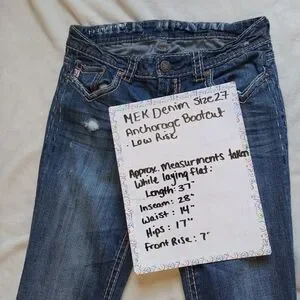 MEK Denim Size 27
Anchorage Bootcut
- Low Rise
Approx. Measurments taken
While laying flat:
Length: 37"
Inseam: 28"
Waist: 14"
Hips: 17"
Front Rise: 7"